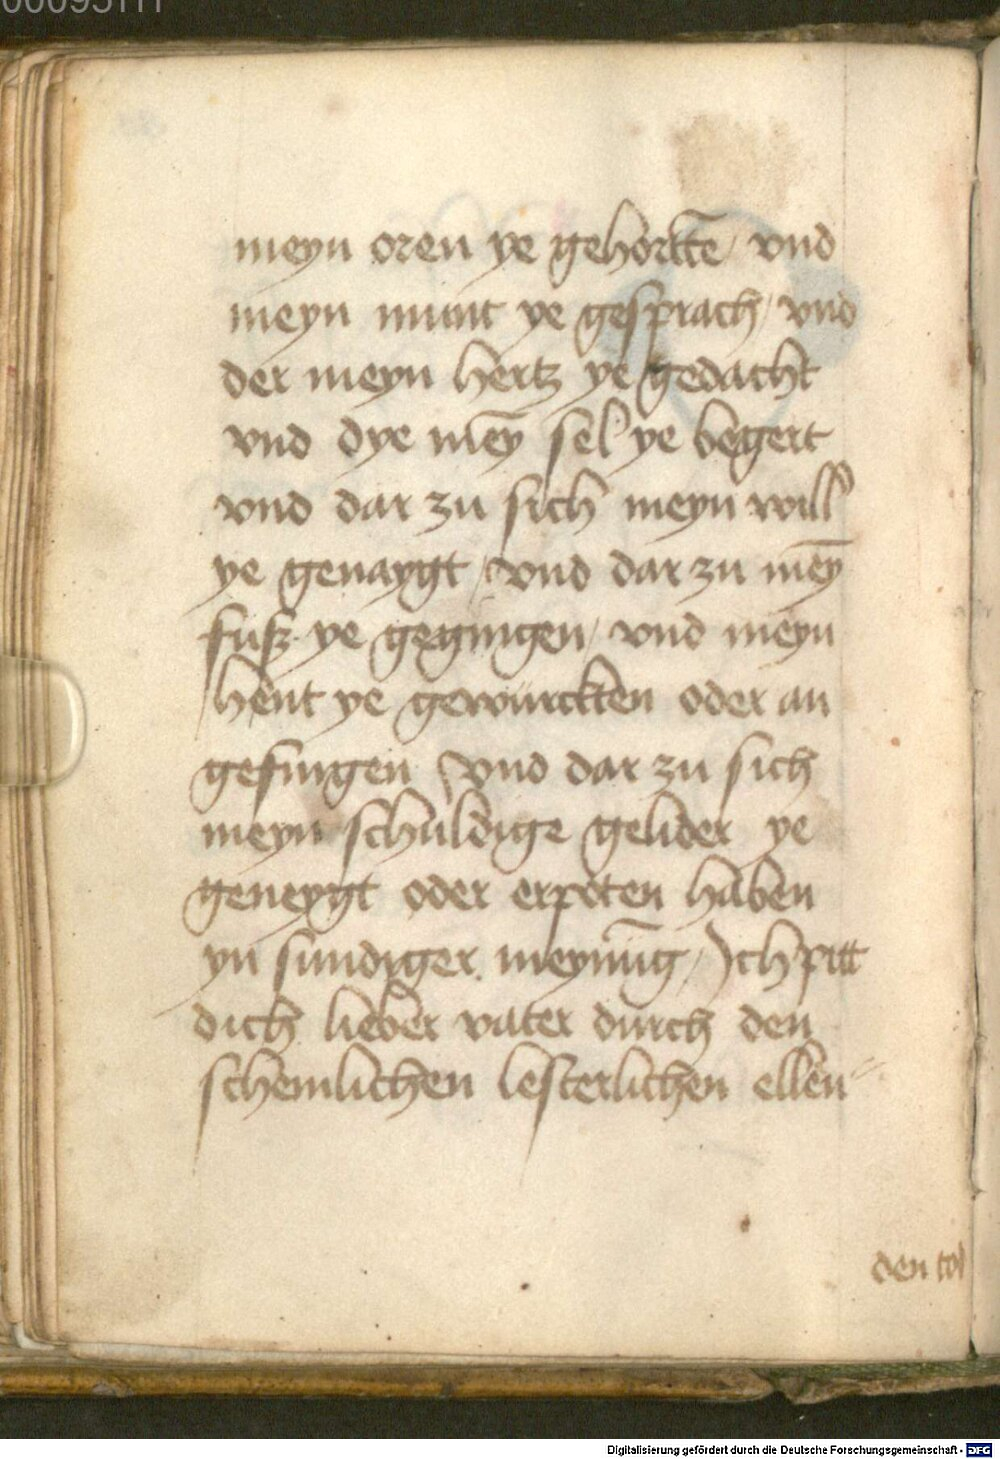 meyn oren ye gehorktē / vnd
meyn munt ye gesprach / vnd
der meyn hertz ye gedacht
vnd dye mēy sel ye begert
vnd dar zu sich meyn will
ye genaygt / vnd dar zu mēy
fuß ye gegingen / vnd meyn
hent ye gewurckten oder an
gefingen / vnd dar zu sich
meyn schuldige gelider ye
geneygt oder erpoten haben
yn sundiger meynūg / Ich pitt
dich lieber vater durch den
schemlichen lesterlichen ellen
den tod
Digitalisierung gefördert durch die Deutsche Forschungsgemeinschaft - DFG